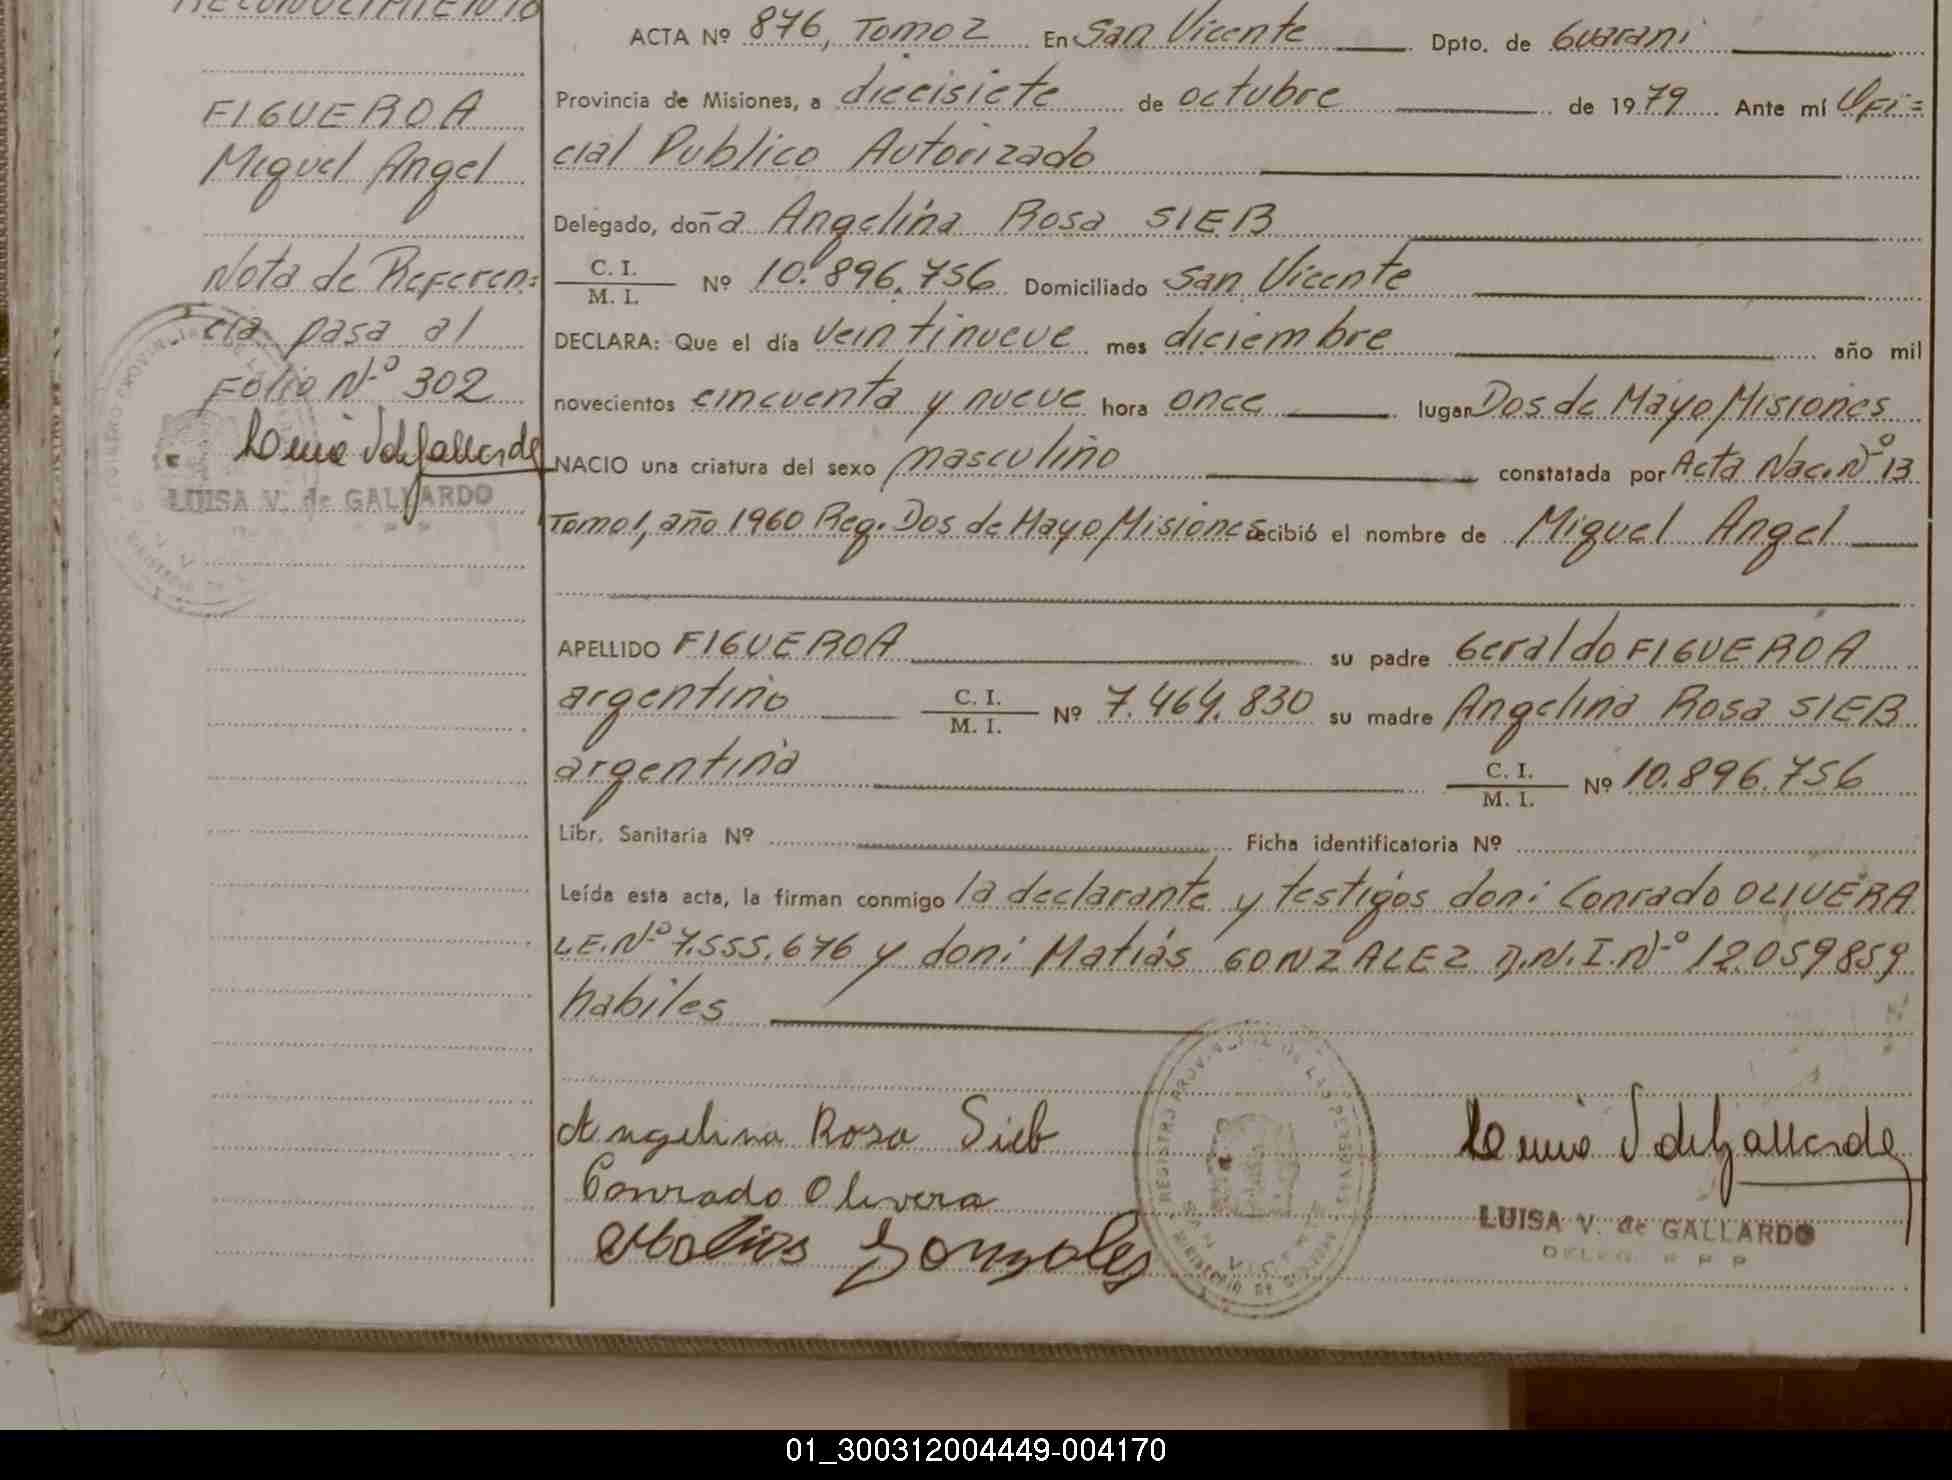 RECONOCIMIENTO
FIGUEROA
Miguel Angel
Nota de Referen=
cia pasa al
Folio Nº 302
LUISA V. de GALLARDO
ACTA Nº 876, Tomo 2 En San Vicente Dpto. de Guarani
Provincia de Misiones, a diecisiete de octubre de 1979 Ante mí Ofi=
cial Publico Autorizado
Delegado, doña Angelina Rosa SIEB
C. I.
M. I. Nº 10.896.756 Domiciliado San Vicente
DECLARA: Que el día veintinueve mes diciembre año mil
novecientos cincuenta y nueve hora once lugar Dos de Mayo Misiones
NACIO una criatura del sexo masculino constatada por Acta Nac. Nº 13
Tomo 1, año 1960 Reg. Dos de Mayo Misiones recibió el nombre de Miguel Angel
APELLIDO FIGUEROA su padre Geraldo FIGUEROA
argentino C. I.
M. I. Nº 7.464.830 su madre Angelina Rosa SIEB
argentina C. I.
M. I. Nº 10.896.756
Libr. Sanitaria Nº Ficha identificatoria Nº
Leída esta acta, la firman conmigo la declarante y testigos don: Conrado OLIVERA
L.E. Nº 7.555.676 y don: Matias GONZALEZ D.N.I. Nº 12.059859
habiles
Angelina Rosa Sieb
Conrado Olivera
Matias Gonzalez
REGISTRO PROVINCIAL DE LAS PERSONAS
LUISA V. de GALLARDO
DELEG. R P P
01_300312004449-004170